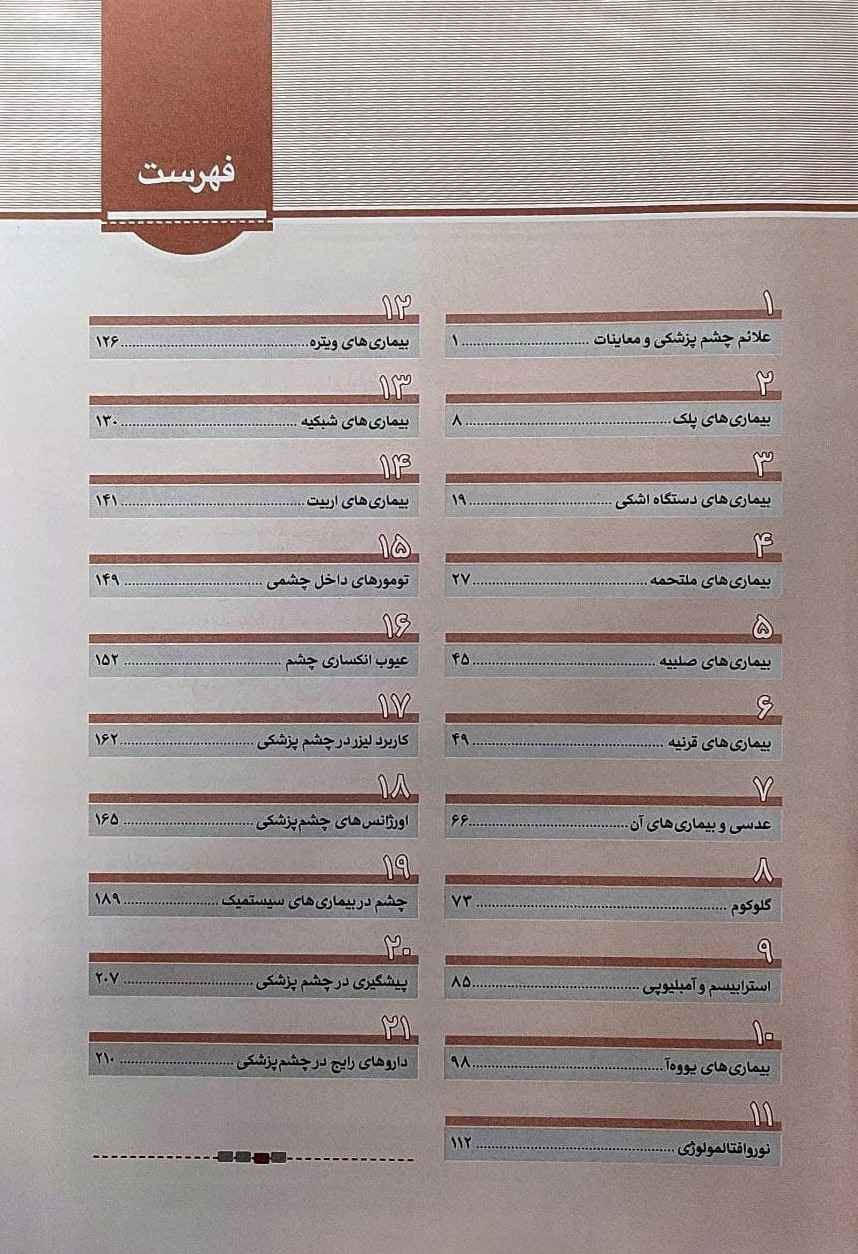 فهرست
۱
علائم چشم پزشکی و معاینات ........ ۱
۲
بیماری‌های پلک ........ ۸
۳
بیماری‌های دستگاه اشکی ........ ۱۹
۴
بیماری‌های ملتحمه ........ ۲۷
۵
بیماری‌های صلبیه ........ ۴۵
۶
بیماری‌های قرنیه ........ ۴۹
۷
عدسی و بیماری‌های آن ........ ۶۶
۸
گلوکوم ........ ۷۳
۹
استرابیسم و آمبلیوپی ........ ۸۵
۱۰
بیماری‌های یووه‌آ ........ ۹۸
۱۱
نوروافتالمولوژی ........ ۱۱۲
۱۲
بیماری‌های ویتره ........ ۱۲۶
۱۳
بیماری‌های شبکیه ........ ۱۳۰
۱۴
بیماری‌های اربیت ........ ۱۴۱
۱۵
تومورهای داخل چشمی ........ ۱۴۹
۱۶
عیوب انکساری چشم ........ ۱۵۲
۱۷
کاربرد لیزر در چشم پزشکی ........ ۱۶۲
۱۸
اورژانس‌های چشم‌پزشکی ........ ۱۶۵
۱۹
چشم در بیماری‌های سیستمیک ........ ۱۸۹
۲۰
پیشگیری در چشم پزشکی ........ ۲۰۷
۲۱
داروهای رایج در چشم‌پزشکی ........ ۲۱۰